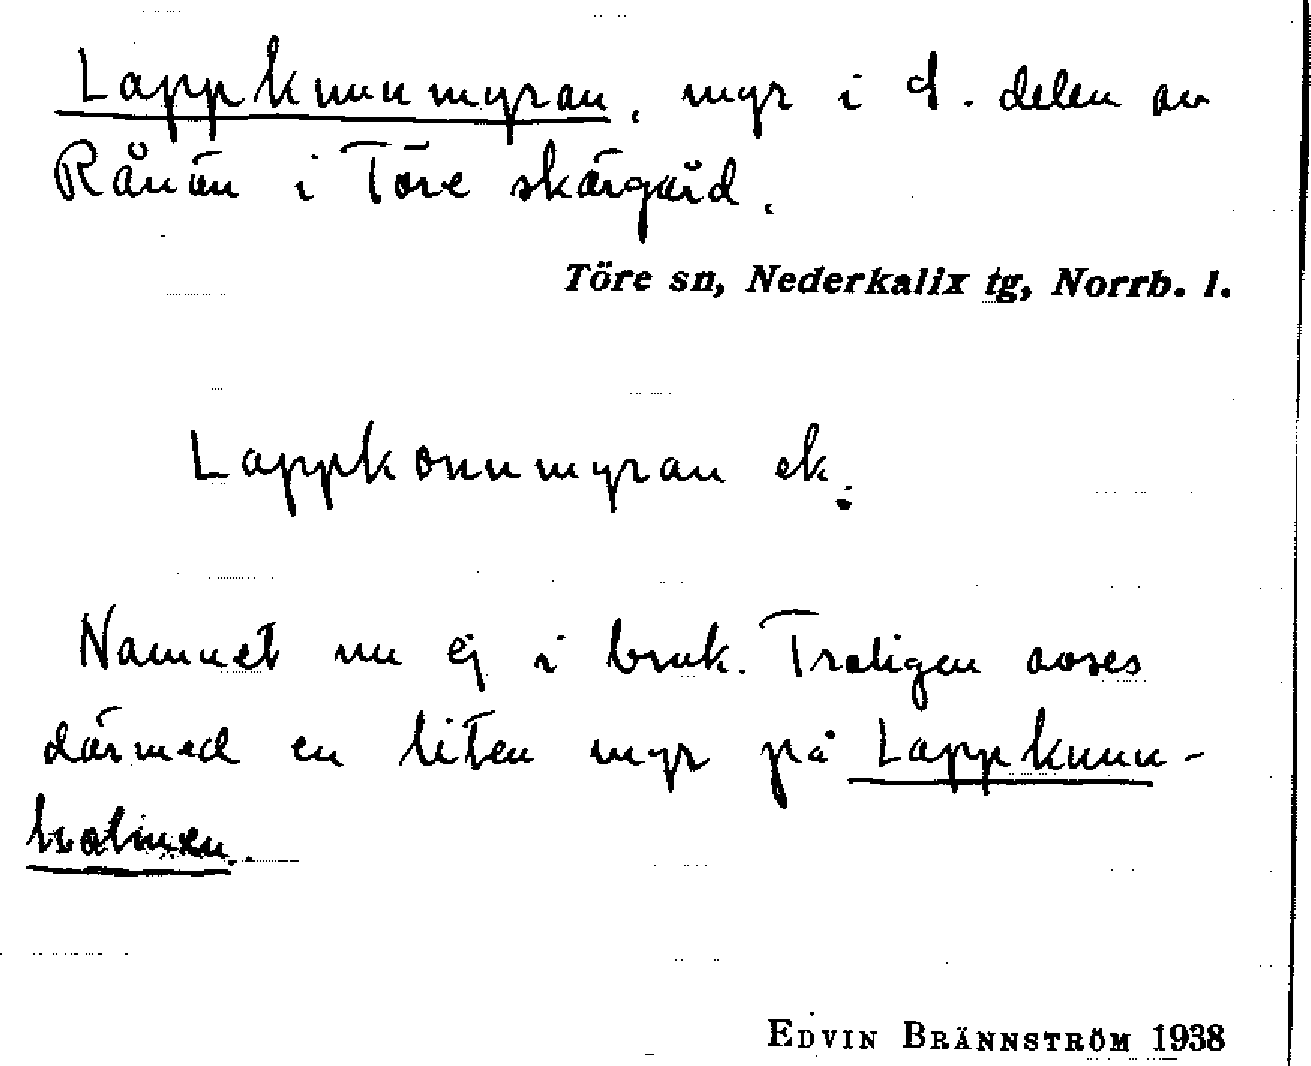 Lappkunnmyran, myr i delen av
Rånön i Töre skärgård.
Töre sn, Nederkalix tg, Norrb. l.
Lappkonnmyran ek.
Namnet nu ej i bruk. Troligen avses
därmed en liten myr på Lappkunn-
holmen.
EDVIN BRÄNNSTRÖM 1938